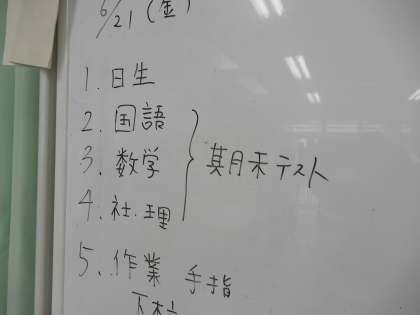 6/21(金)
1. 日生
2. 国語
3. 数学
期月末テスト
4. 社・理
5. 作業 手指